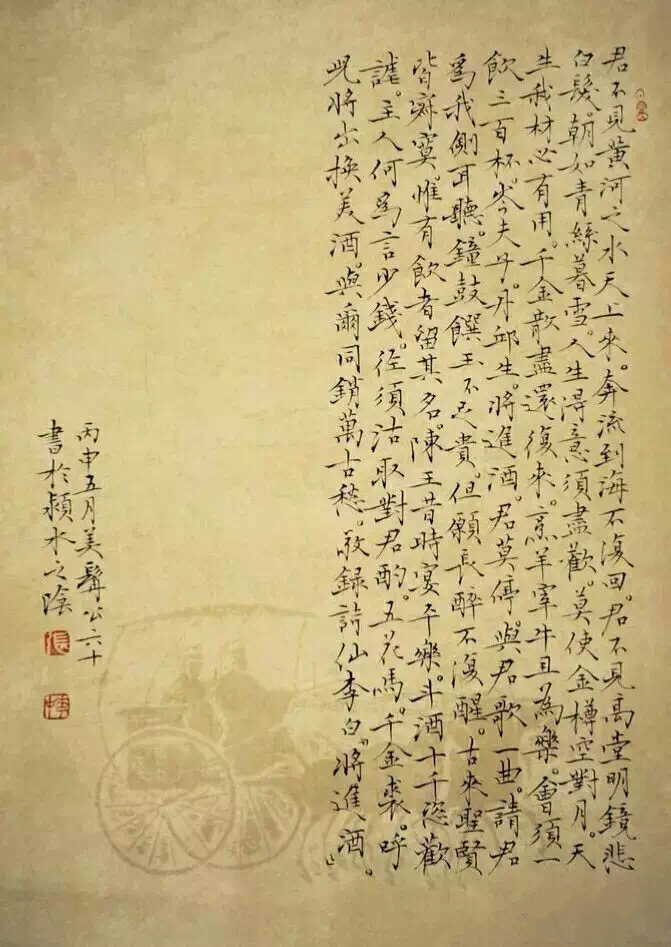 君不見黃河之水天上來。奔流到海不復回。君不見高堂明鏡悲
白髮。朝如青絲暮雪。人生得意須盡歡。莫使金樽空對月。天
生我材必有用。千金散盡還復來。烹羊宰牛且為樂。會須一
飲三百杯。岑夫子。丹邱生。將進酒。君莫停。與君歌一曲。請君
爲我側耳聽。鐘鼓饌玉不足貴。但願長醉不復醒。古來聖賢
皆寂寞。惟有飲者留其名。陳王昔時宴平樂。斗酒十千恣歡
謔。主人何爲言少錢。徑須沽取對君酌。五花嗎。千金裘。呼
児將出換美酒。與爾同銷萬古愁。敬錄詩仙李白『將進酒。』
丙申五月美髯公六十
書於潁水之陰
張